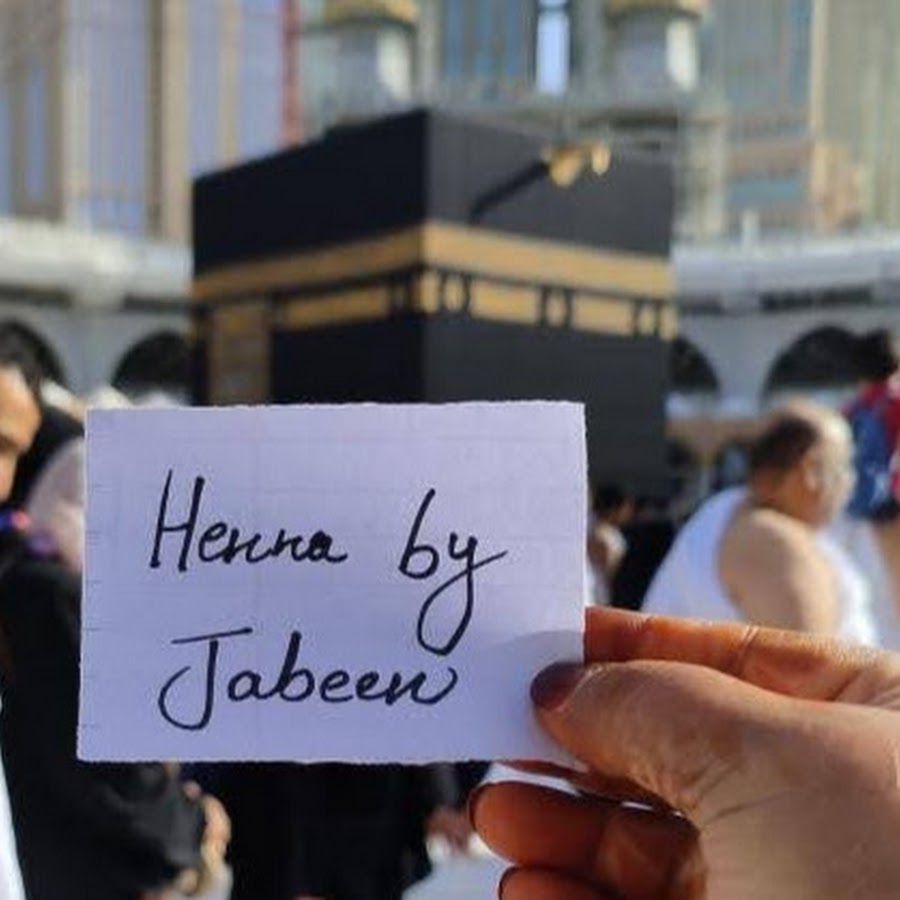 Henna by
Jabeen